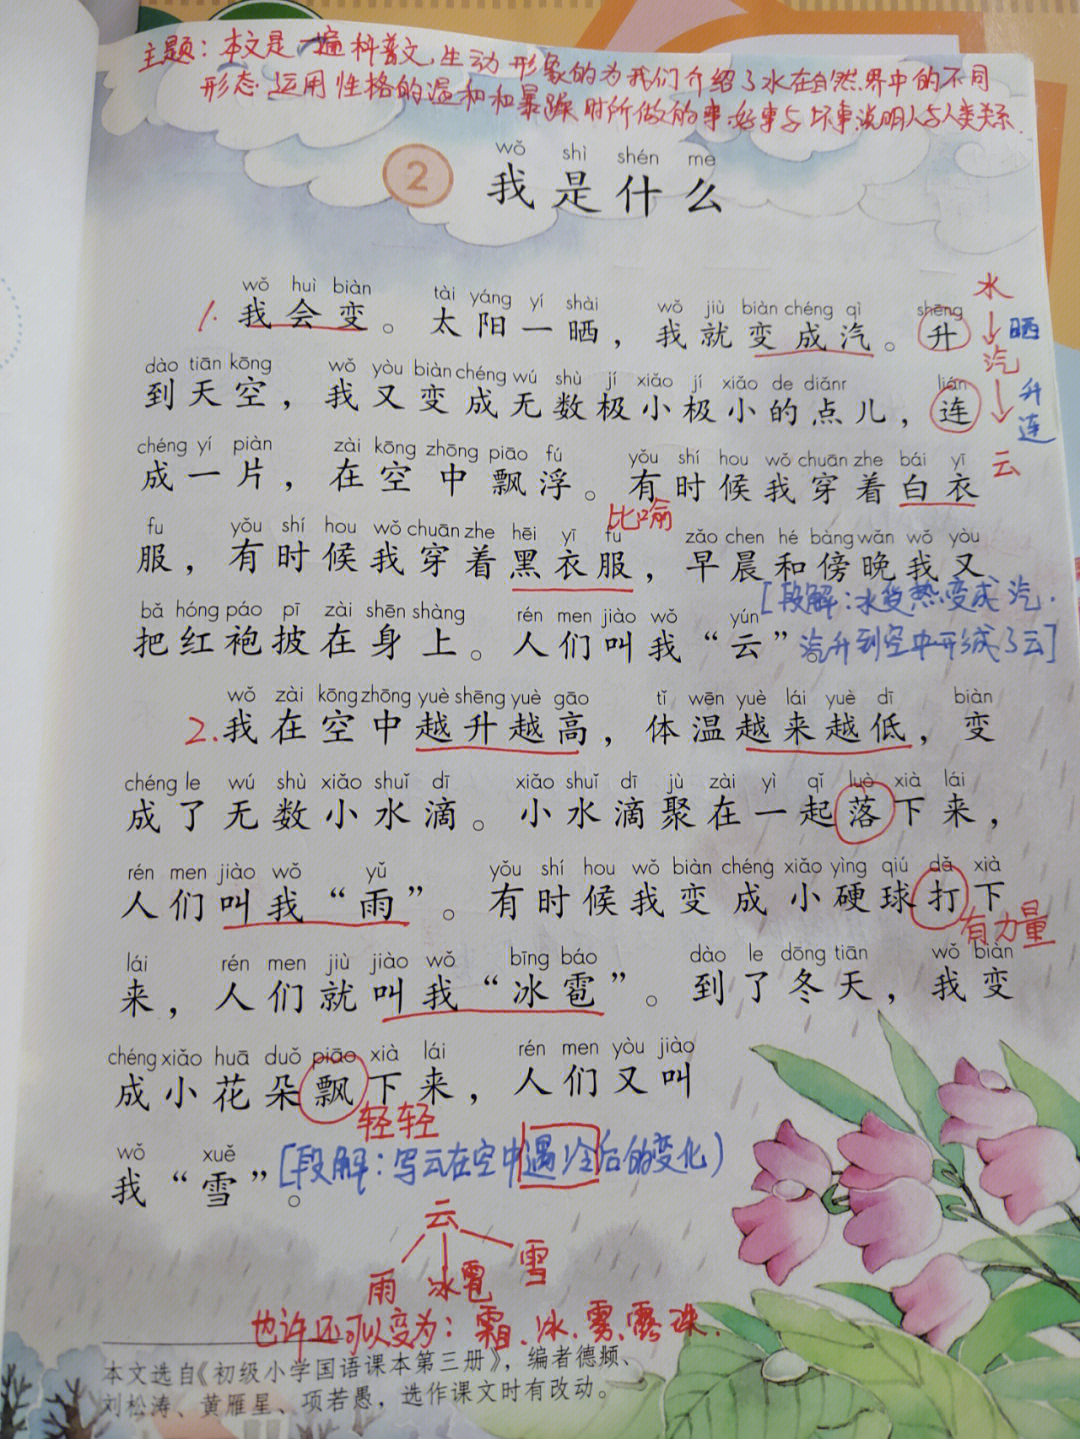 主题：本文是一遍科普文,生动形象的为我们介绍了水在自然界中的不同
形态.运用性格的温和和暴躁时所做的事.好事与坏事,说明人与人类关系.
wǒ shì shén me
2 我是什么
wǒ huì biàn tài yáng yí shài wǒ jiù biàn chéng qì shēng
1. 我会变。太阳一晒，我就变成汽。升
水
↓晒
汽
↓升连
云
dào tiān kōng wǒ yòu biàn chéng wú shù jí xiǎo jí xiǎo de diǎnr lián
到天空，我又变成无数极小极小的点儿，连
chéng yí piàn zài kōng zhōng piāo fú yǒu shí hou wǒ chuān zhe bái yī
成一片，在空中飘浮。有时候我穿着白衣
比喻
fu yǒu shí hou wǒ chuān zhe hēi yī fu zǎo chen hé bàng wǎn wǒ yòu
服，有时候我穿着黑衣服，早晨和傍晚我又
[段解：水受热变成汽.
bǎ hóng páo pī zài shēn shàng rén men jiào wǒ yún
把红袍披在身上。人们叫我“云”。
汽升到空中形成了云]
wǒ zài kōng zhōng yuè shēng yuè gāo tǐ wēn yuè lái yuè dī biàn
2.我在空中越升越高，体温越来越低，变
chéng le wú shù xiǎo shuǐ dī xiǎo shuǐ dī jù zài yì qǐ luò xià lái
成了无数小水滴。小水滴聚在一起落下来，
rén men jiào wǒ yǔ yǒu shí hou wǒ biàn chéng xiǎo yìng qiú dǎ xià
人们叫我“雨”。有时候我变成小硬球打下
有力量
lái rén men jiù jiào wǒ bīng báo dào le dōng tiān wǒ biàn
来，人们就叫我“冰雹”。到了冬天，我变
chéng xiǎo huā duǒ piāo xià lái rén men yòu jiào
成小花朵飘下来，人们又叫
轻轻
wǒ xuě
我“雪”。
[段解：写云在空中遇冷后的变化)
云
雨 冰雹 雪
也许还可以变为：霜.冰.雾.露珠.
本文选自《初级小学国语课本第三册》，编者德频、
刘松涛、黄雁星、项若愚，选作课文时有改动。